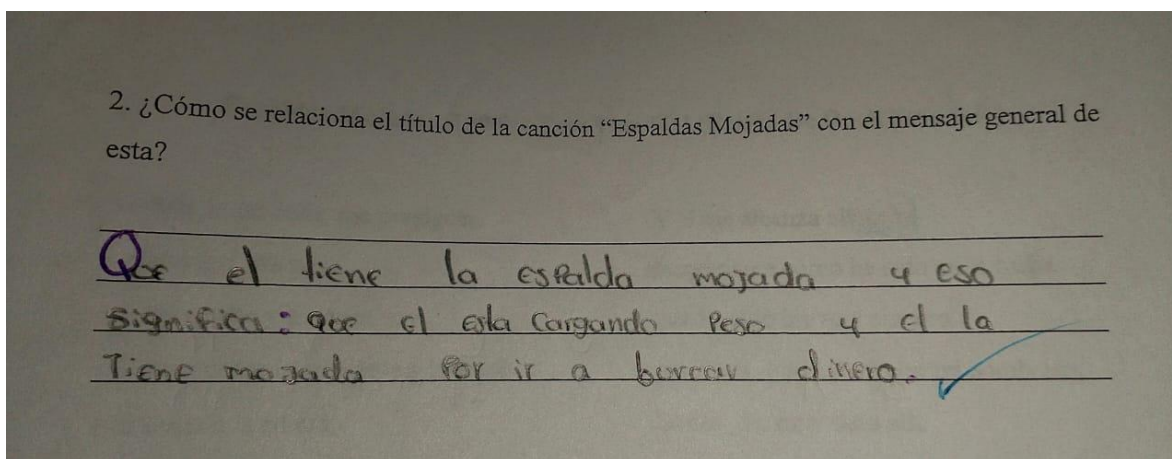 2. ¿Cómo se relaciona el título de la canción “Espaldas Mojadas” con el mensaje general de
esta?
Que el tiene la espalda mojada y eso
significa: que el esta Cargando Peso y el la
Tiene mojada por ir a dinero.